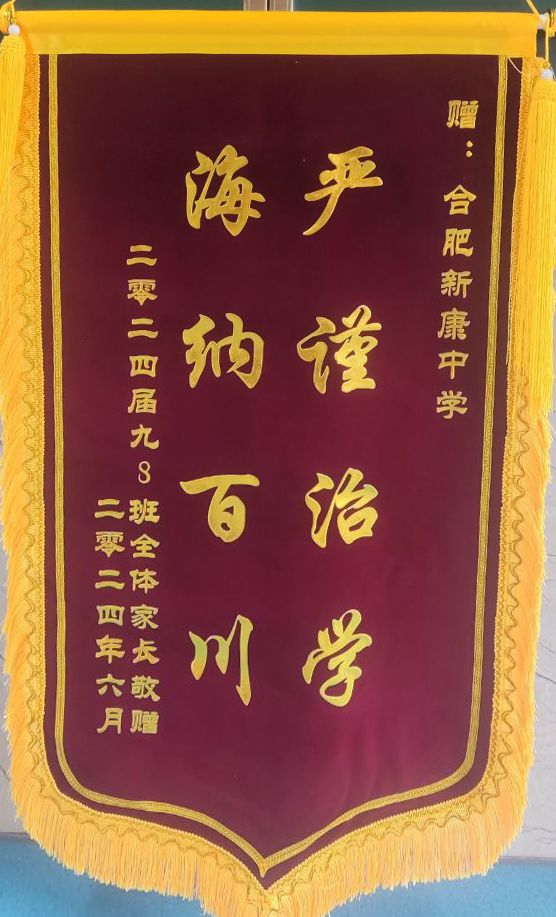 赠：合肥新康中学
严谨治学
海纳百川
二零二四届九8班全体家长敬赠
二零二四年六月